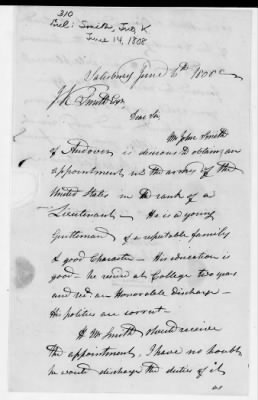 310
Encl: Smith, Jno, K
June 14, 1808
Salisbury June 6th 1808
J K Smith Esq
Dear Sir,
Mr John Smith
of Andover is desirous to obtain, an
appointment in the army of the
United States in the rank of a
Lieutenant - He is a young
Gentleman of a reputable family
& good Character - His education is
good - he resided at College two years
and red. an Honorable discharge -
His politics are correct -
If Mr Smith should receive
the appointment, I have no doubt
he would discharge the duties of it